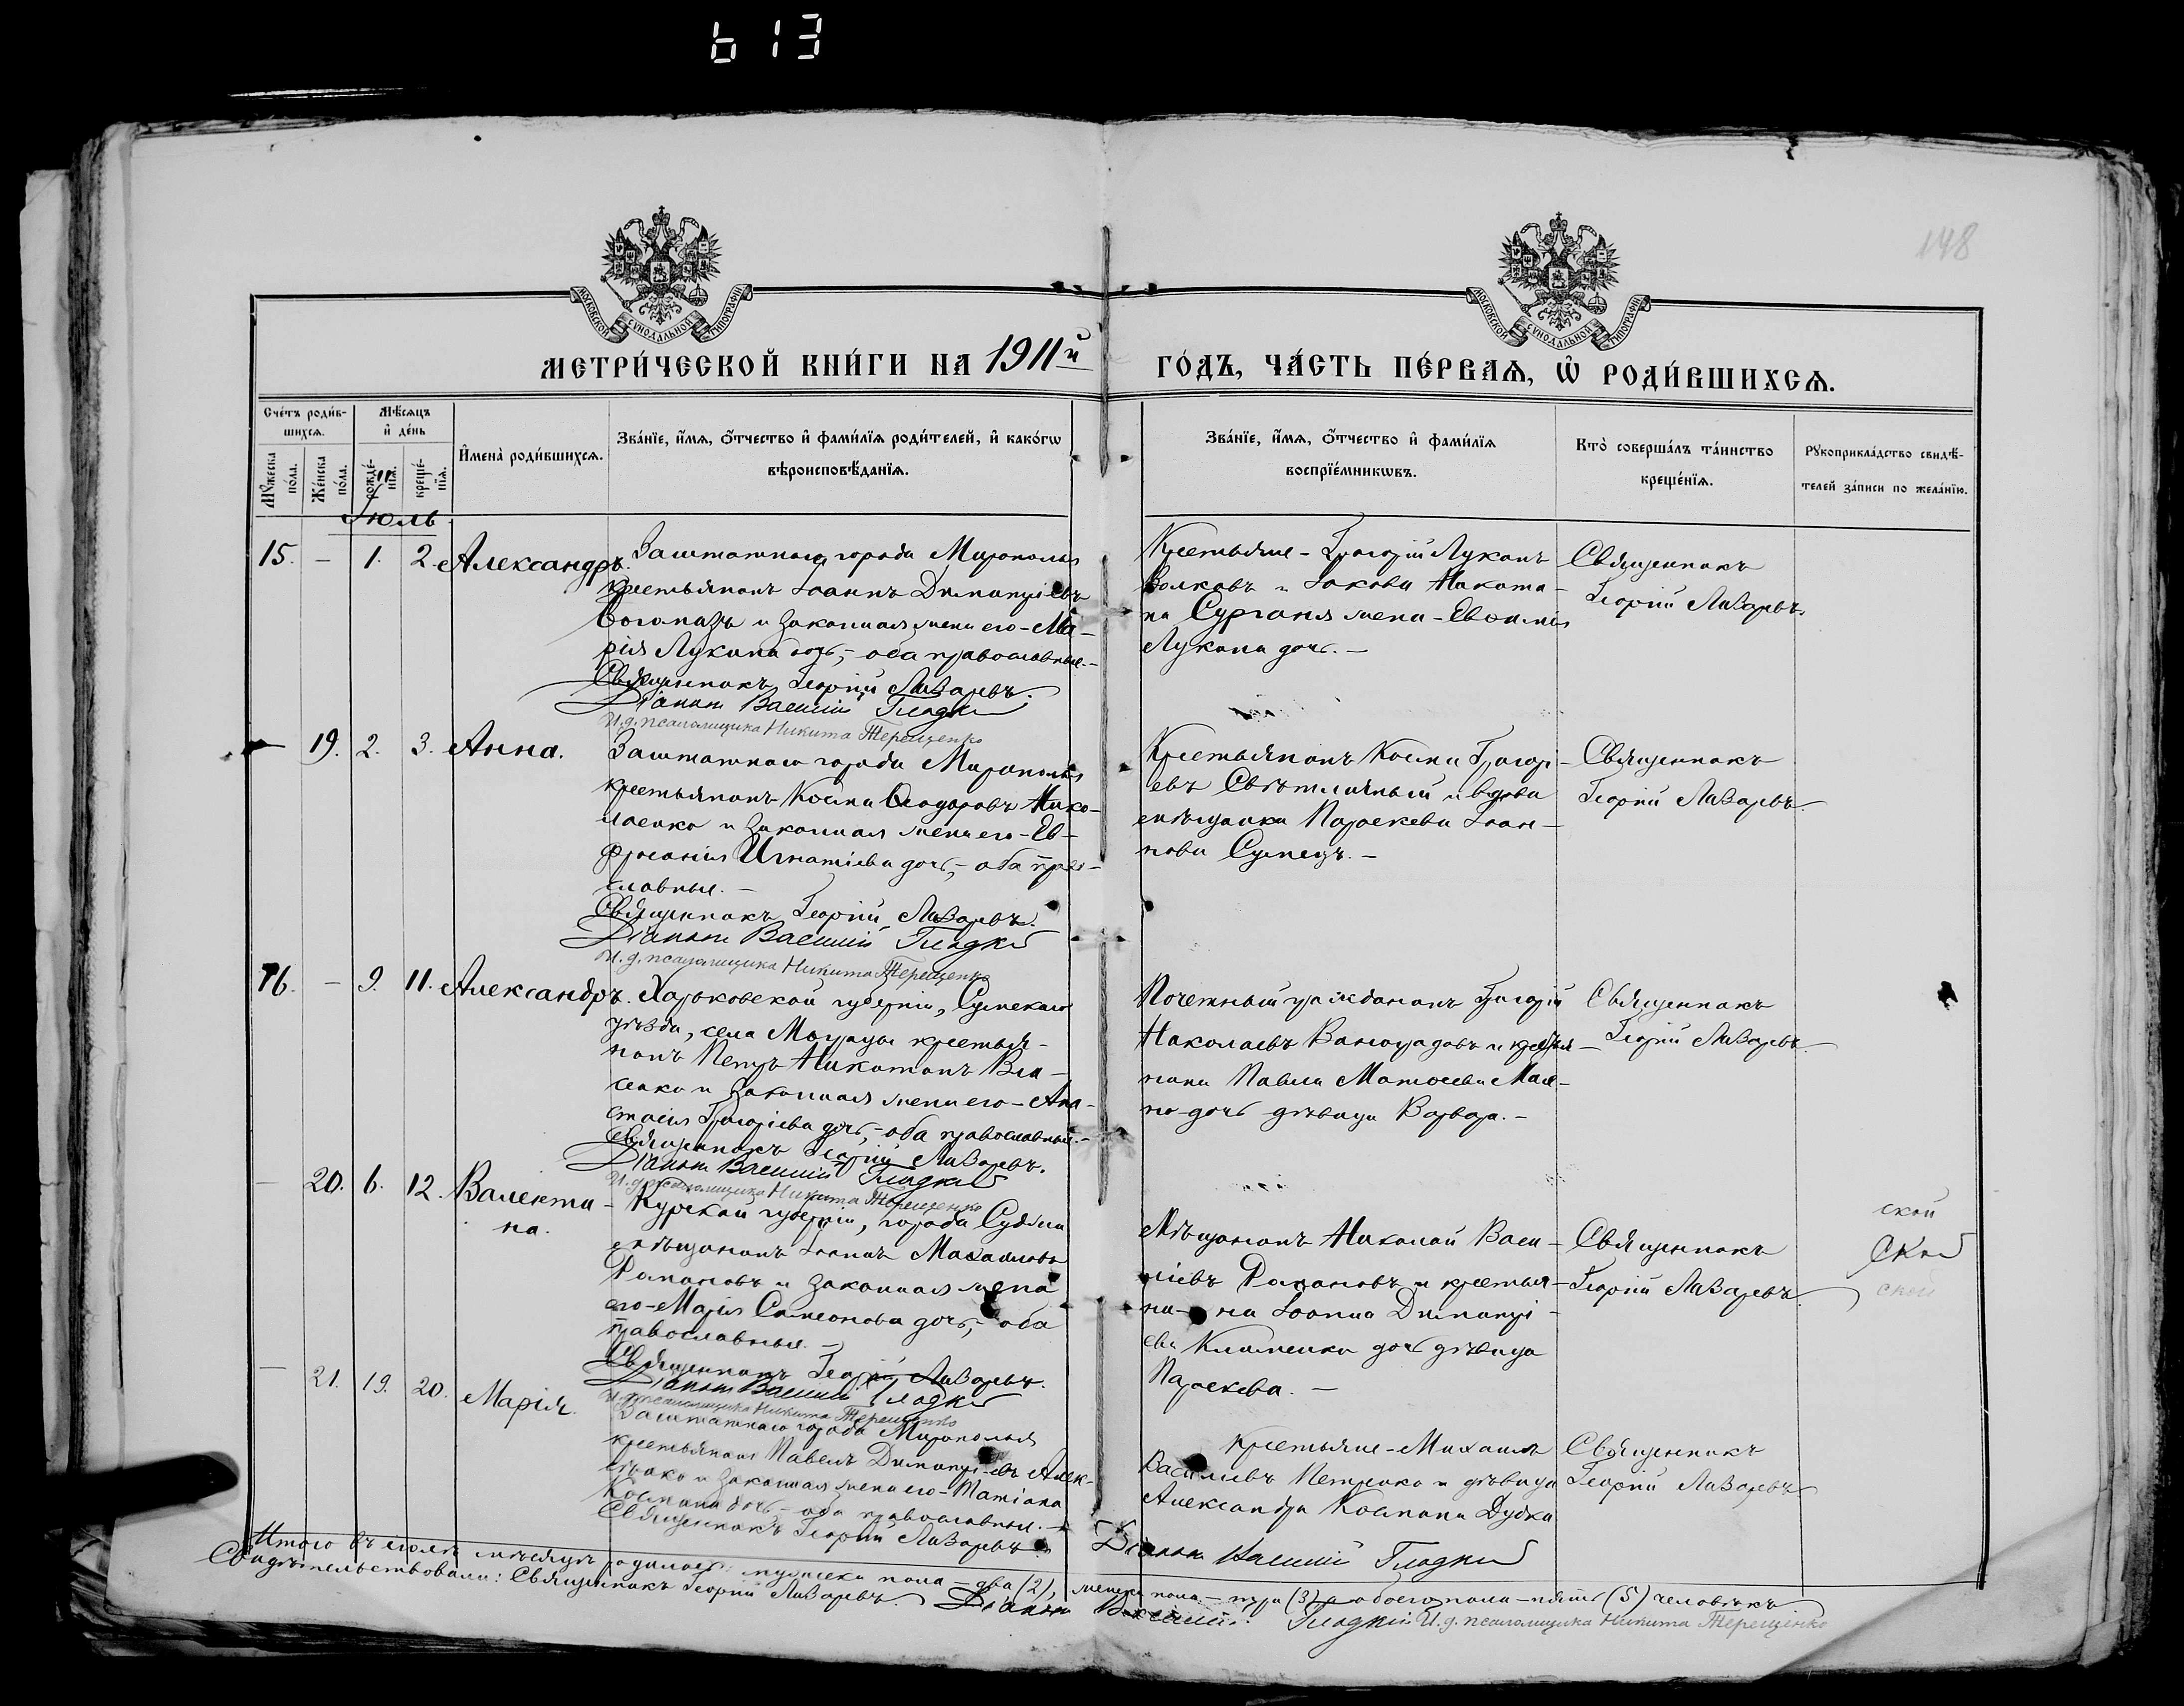 613
148
МОСКОВСКОЙ СѴНОДАЛЬНОЙ ТИПОГРАФІИ
МОСКОВСКОЙ СѴНОДАЛЬНОЙ ТИПОГРАФІИ
МЕТРИ́ЧЕСКОЙ КНИ́ГИ НА 1911й
ГО́ДЪ, ЧА́СТЬ ПЕ́РВАѦ, Ѽ РОДИ́ВШИХСѦ.
Сче́тъ роди́в-
шихсѧ.
Мꙋ́жеска по́ла.
Же́нска по́ла.
Мѣ́сѧцъ
и҆ де́нь
рожде́-
нїѧ.
креще́-
нїѧ.
И҆мена̀ роди́вшихсѧ.
Зва́нїе, и҆́мѧ, ѻ҆́тчество и҆ фами́лїѧ роди́телей, и҆ како́гѡ
вѣроисповѣ́данїѧ.
Зва́нїе, и҆́мѧ, ѻ҆́тчество и҆ фами́лїѧ
воспрїе́мникѡвъ.
Кто̀ соверша́лъ та́инство
креще́нїѧ.
Рꙋкоприкла́дство свидѣ́-
телей за́писи по жела́нїю.
Іюль
15. – 1. 2. Александръ.
Заштатнаго города Мирополья
крестьянинъ Іоаннъ Димитріевъ
Богомазъ и законная жена его – Ма-
рія Лукина дочь, – оба православные. –
Священникъ Георгій Лазаревъ.
Діаконъ Василій Гладкій
И.д. псаломщика Никита Терещенко
Крестьяне – Григорій Лукинъ
Волковъ и Іакова Никити-
на Сурганя жена – Евфимія
Лукина дочь. –
Священникъ
Георгій Лазаревъ.
– 19. 2. 3. Анна.
Заштатнаго города Мирополья
крестьянинъ Косма Ѳеодоровъ Нико-
лаенко и законная жена его – Ев-
фросинія Игнатіева дочь, – оба право-
славные. –
Священникъ Георгій Лазаревъ.
Діаконъ Василій Гладкій
И.д. псаломщика Никита Терещенко
Крестьянинъ Косма Григорі-
евъ Свѣтличный и вдова
мѣщанка Параскева Іоан-
нова Сумецъ. –
Священникъ
Георгій Лазаревъ.
16. – 9. 11. Александръ.
Харьковской губерніи, Сумскаго
уѣзда, села Могрицы крестья-
нинъ Петръ Никитинъ Вла-
сенко и законная жена его – Ана-
стасія Григоріева дочь, – оба православные. –
Священникъ Георгій Лазаревъ.
Діаконъ Василій Гладкій
И.д. псаломщика Никита Терещенко
Почетный гражданинъ Григорій
Николаевъ Виноградовъ и крестья-
нина Павла Матѳеева
дочь дѣвица Варвара. –
Священникъ
Георгій Лазаревъ.
– 20. 6. 12. Валенти-
на.
Курской губерніи, города Суджи
мѣщанинъ Іоаннъ Михаиловъ
Романовъ и законная жена
его – Марія Симеонова дочь, – оба
православные. –
Священникъ Георгій Лазаревъ.
Діаконъ Василій Гладкій
И.д. псаломщика Никита Терещенко
Мѣщанинъ Николай Васи-
ліевъ Романовъ и крестья-
ни- на Іоанна Димитрі-
ева Клименка дочь дѣвица
Параскева. –
Священникъ
Георгій Лазаревъ.
ской
Ской
ской
– 21. 19. 20. Марія.
Заштатнаго города Мирополья
крестьянинъ Павелъ Димитріевъ Алек-
сѣенко и законная жена его – Татіана
Космина дочь, – оба православные. –
Священникъ Георгій Лазаревъ.
Діаконъ Василій Гладкій
Крестьяне – Михаилъ
Василіевъ Петренко и дѣвица
Александра Космина Дудка
Священникъ
Георгій Лазаревъ
Итого въ іюлѣ мѣсяцѣ родилось: мужеска пола – два (2), женска пола – три (3), обоего пола – пять (5) человѣкъ
Свидѣтельствовали: Священникъ Георгій Лазаревъ. Діаконъ Василій Гладкій И.д. псаломщика Никита Терещенко